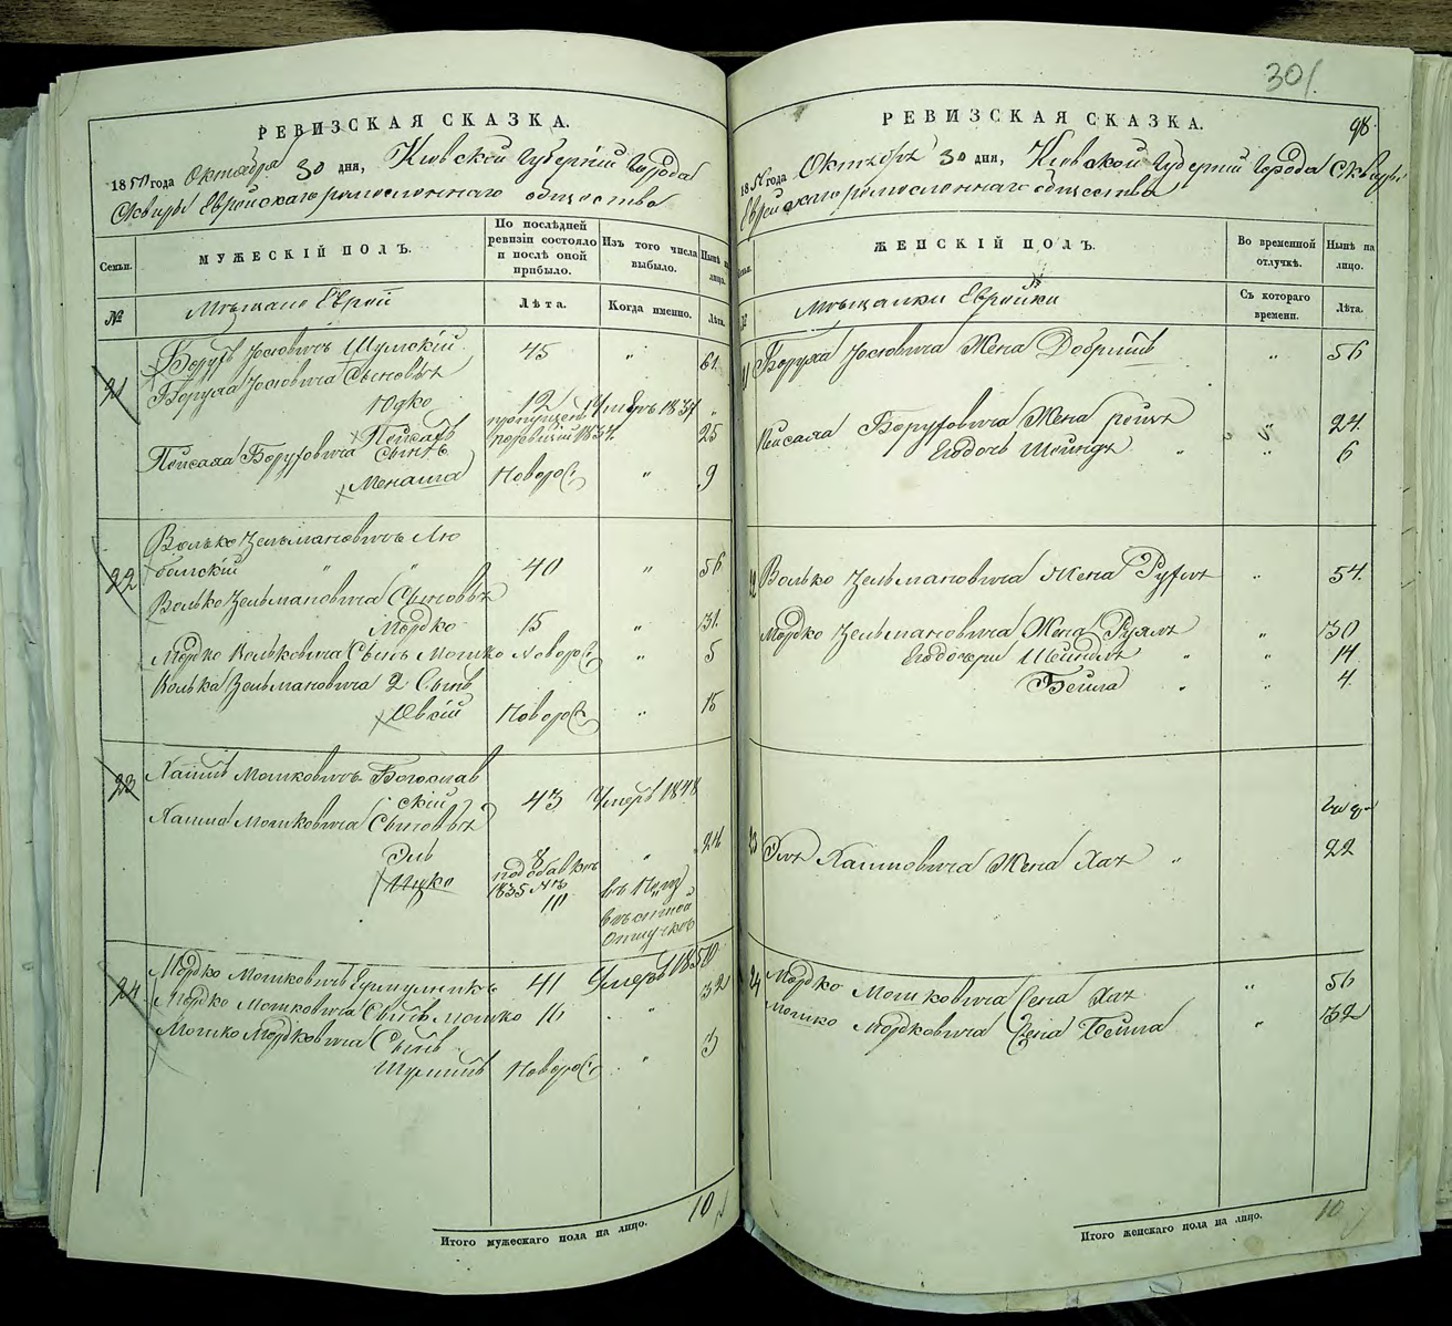 РЕВИЗСКАЯ СКАЗКА.
1850 года Октября 30 дня, Кіевской Губерніи Города
Сквиры Еврейскаго ремесленнаго общества
Семьи.
МУЖЕСКІЙ ПОЛЪ.
По послѣдней
ревизіи состояло
и послѣ оной
прибыло.
Изъ того числа
выбыло.
Нынѣ на
лицо.
№
Мѣщане Евреи
Лѣта.
Когда именно.
Лѣта.
21
Борухъ Іосіовичъ Шумскій 45 " 61
Боруха Іосіовича Сыновья
Юдко 12 Умеръ 1837 "
Пейсахъ пропущенъ 25
Пейсаха Боруховича Сынъ
Менаша Новорож " 9
22
Волько Зельмановичъ Лю
бомскій " " 40 " 56
Волько Зельмановича Сыновья
Мордко 15 " 31
Мордко Вольковича Сынъ Мошко Новорож " 5
Волька Зельмановича 2 Сынъ
Овсій Новорож " 15
23
Хаимъ Мошковичъ Богослав
скій 43 Умеръ 1848
Хаима Мошковича Сыновья
Эль 8 "
Ицко 1835 №
10
отлучкѣ
24
Мордко Мошковичъ 41 Умеръ 1850
Мордко Мошковича Сынъ Мошко 16 " 32
Мошко Мордковича Сынъ
Шулимъ Новорож " 3
10
Итого мужескаго пола на лицо.
301.
98
РЕВИЗСКАЯ СКАЗКА.
1850 года Октября 30 дня, Кіевской Губерніи Города Сквиры
Еврейскаго ремесленнаго общества
Семьи.
ЖЕНСКІЙ ПОЛЪ.
Во временной
отлучкѣ.
Нынѣ на
лицо.
№
Мѣщанки Еврейки
Съ котораго
времени.
Лѣта.
21 Боруха Іосіовича Жена Добришъ " 56
Пейсаха Боруховича Жена Рейзя " 24
Его дочь Шейндя " " 6
22 Волько Зельмановича Жена Руфля " 54
Мордко Зельмановича Жена Рузя " 30
Его дочери Шейндля " " 14
Бейла " " 4
23 Эля Хаимовича Жена Хая " 22
24 Мордко Мошковича Жена Хая " 56
Мошко Мордковича Жена Бейла " 32
10
Итого женскаго пола на лицо.